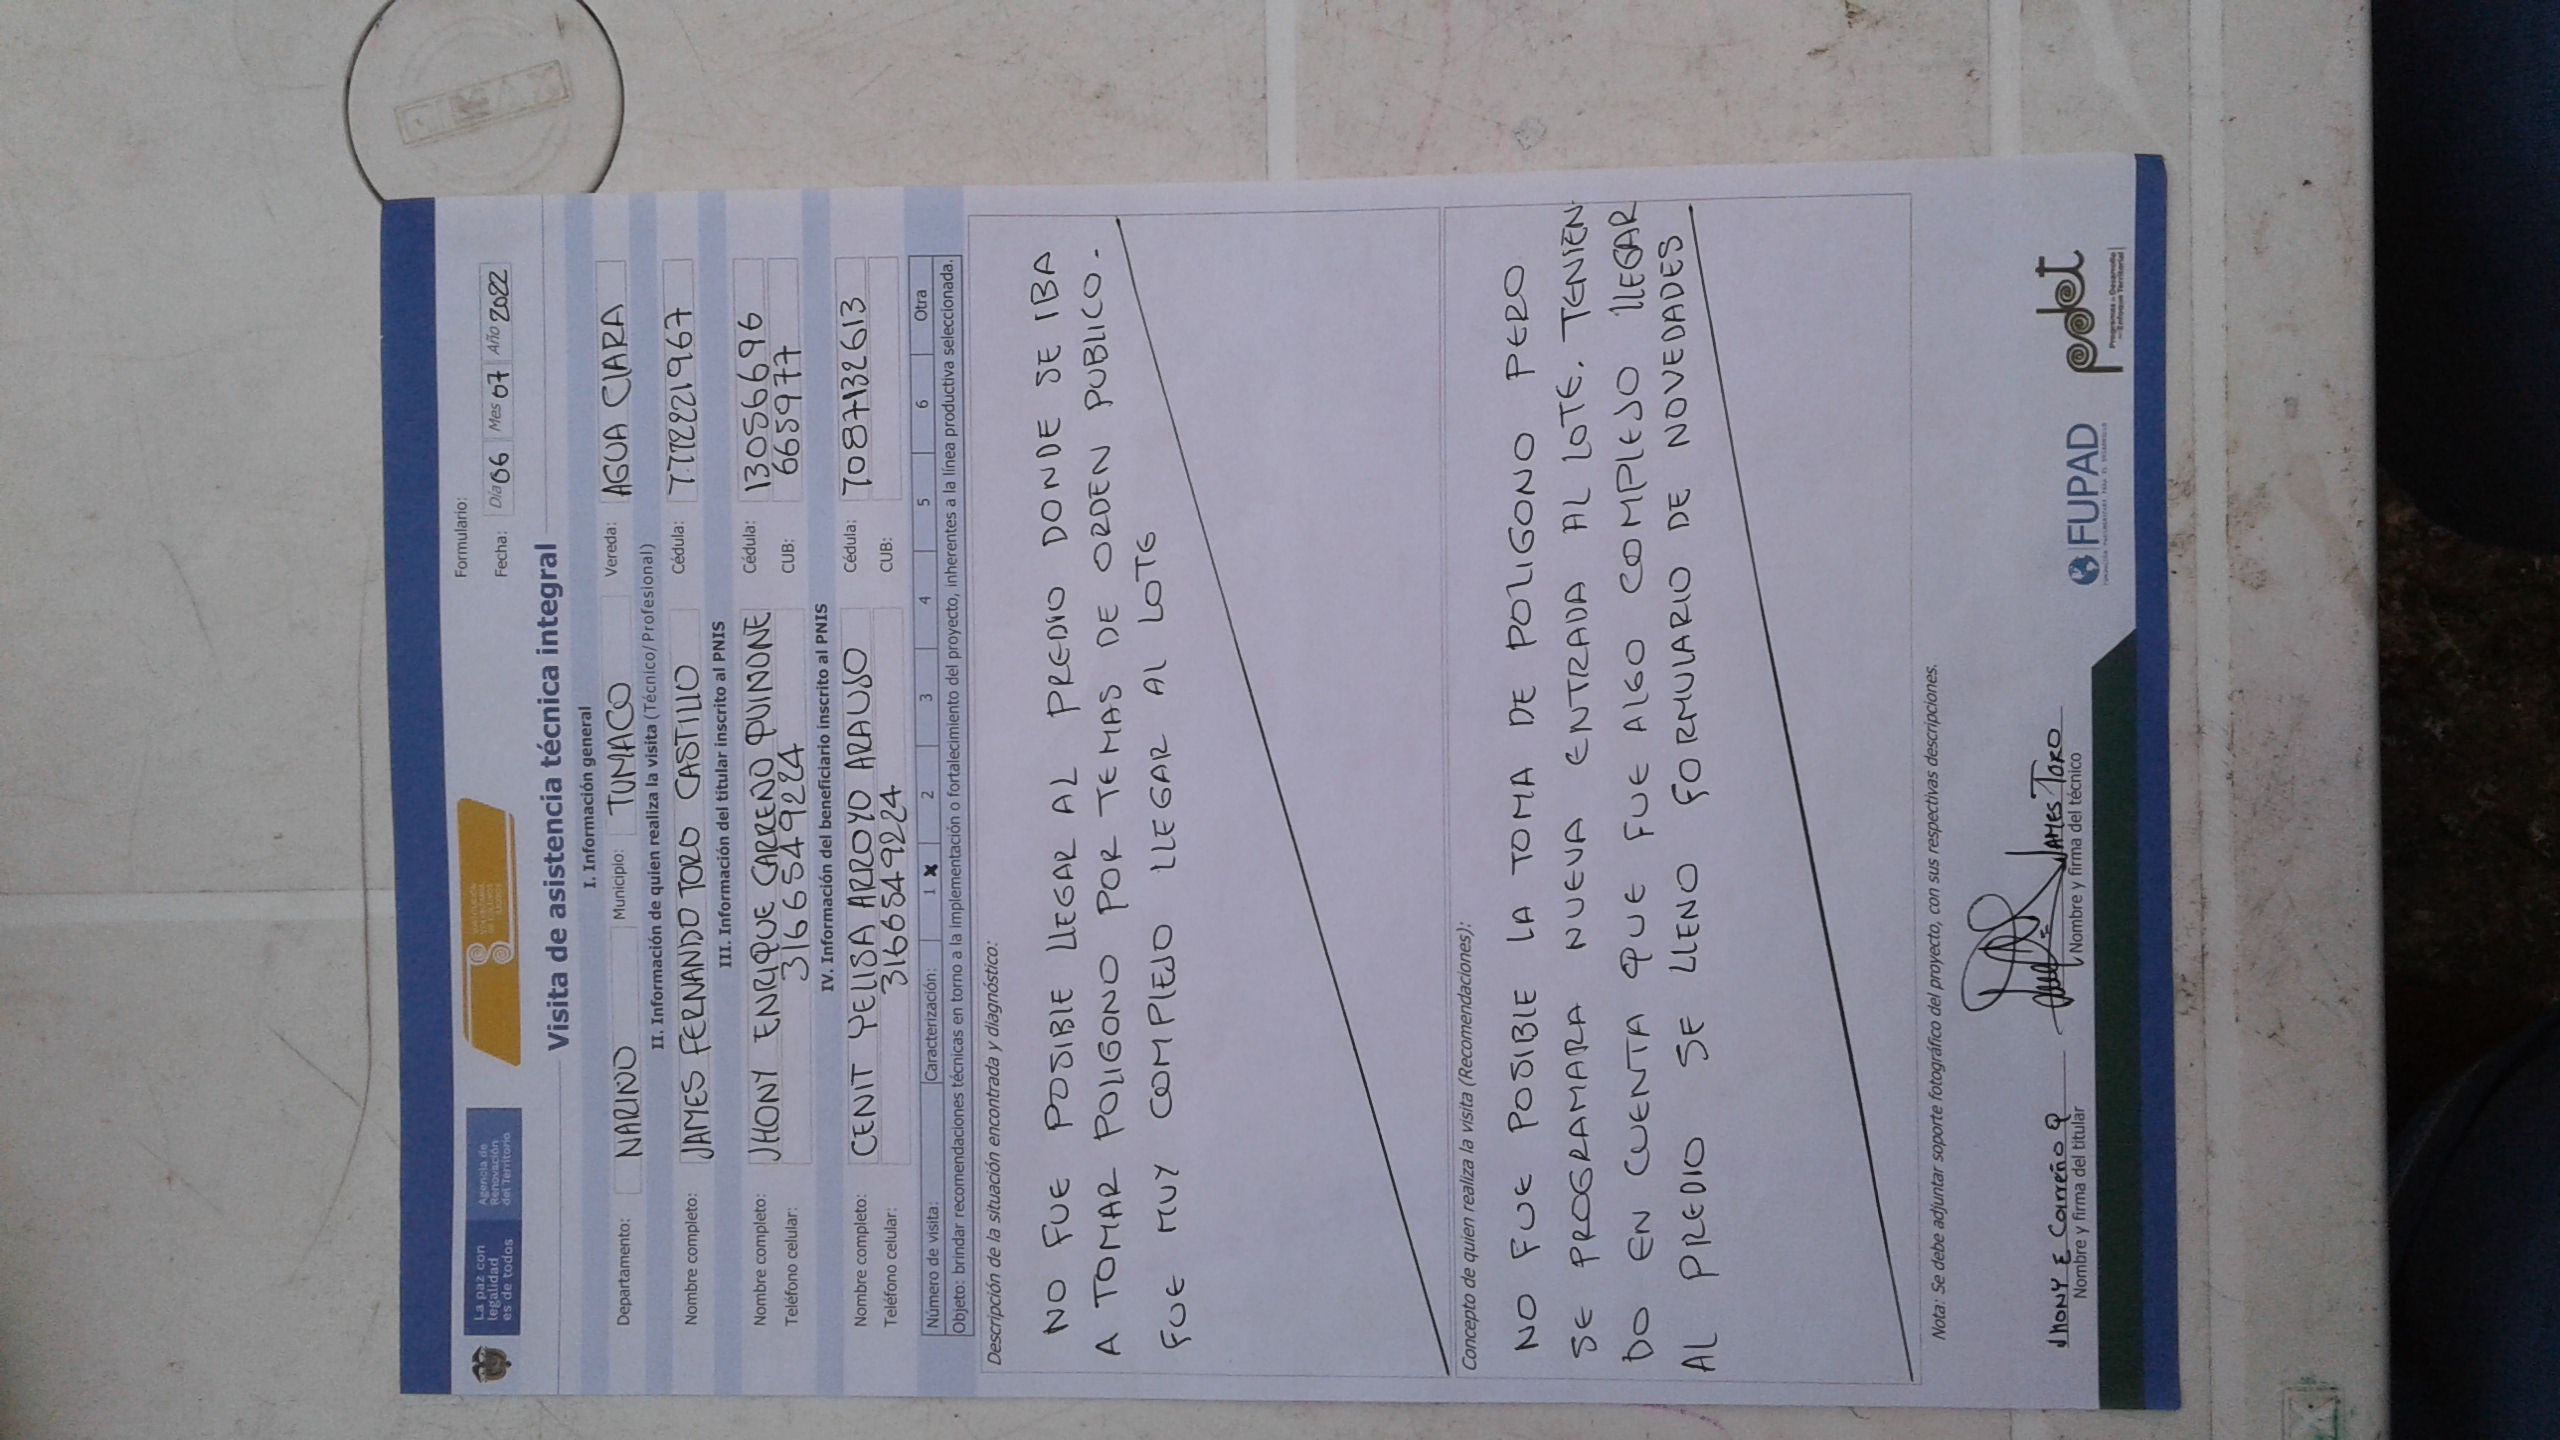 La paz con
legalidad
es de todos
Agencia de
Renovación
del Territorio
SUSTITUCIÓN
VOLUNTARIA
DE CULTIVOS
ILÍCITOS
Formulario:
Fecha: Día 06 Mes 07 Año 2022
Visita de asistencia técnica integral
I. Información general
Departamento: NARINO Municipio: TUMACO Vereda: AGUA CLARA
II. Información de quien realiza la visita (Técnico/Profesional)
Nombre completo: JAMES FERNANDO TORO CASTILLO Cédula:
III. Información del titular inscrito al PNIS
Nombre completo: JHONY ENRIQUE CARRENO QUINONE Cédula: 13056696
Teléfono celular: 3166549224 CUB: 665977
IV. Información del beneficiario inscrito al PNIS
Nombre completo: CENIT YELISA ARROYO ARAUJO Cédula: 1087132613
Teléfono celular: 3166549224 CUB:
Número de visita: Caracterización: 1 X 2 3 4 5 6 Otra
Objeto: brindar recomendaciones técnicas en torno a la implementación o fortalecimiento del proyecto, inherentes a la línea productiva seleccionada.
Descripción de la situación encontrada y diagnóstico:
NO FUE POSIBLE LLEGAR AL PREDIO DONDE SE IBA
A TOMAR POLIGONO POR TEMAS DE ORDEN PUBLICO.
FUE MUY COMPLEJO LLEGAR AL LOTE
Concepto de quien realiza la visita (Recomendaciones):
NO FUE POSIBLE LA TOMA DE POLIGONO PERO
SE PROGRAMARA NUEVA ENTRADA AL LOTE, TENIEN
DO EN CUENTA QUE FUE ALGO COMPLEJO LLEGAR
AL PREDIO SE LLENO FORMULARIO DE NOVEDADES
Nota: Se debe adjuntar soporte fotográfico del proyecto, con sus respectivas descripciones.
JHONY E Carreño Q
Nombre y firma del titular
JAMES TORO
Nombre y firma del técnico
FUPAD
pdet
Programas de Desarrollo
con Enfoque Territorial